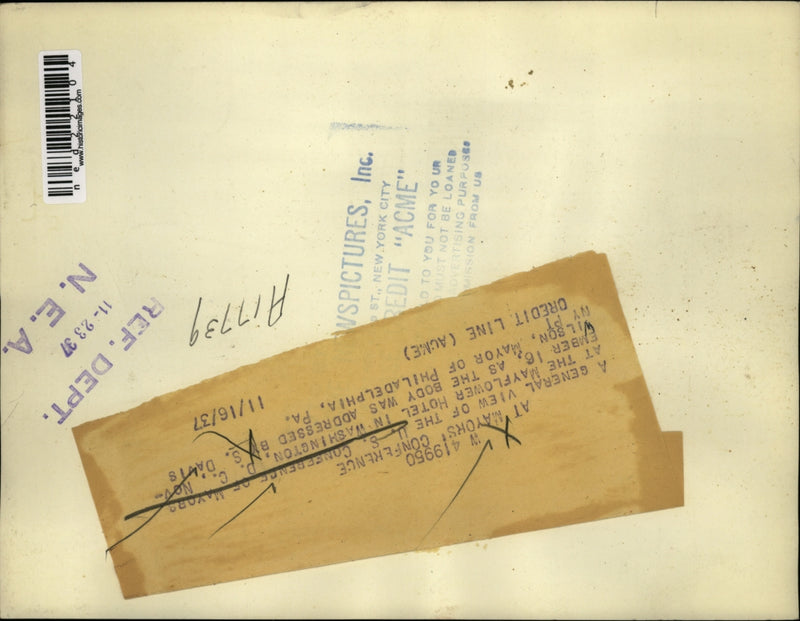 ned22104
www.historicimages.com
WSPICTURES, Inc.
ST., NEW YORK CITY
REDIT "ACME"
D TO YOU FOR YOUR
MUST NOT BE LOANED
VERTISING PURPOSES
MISSION FROM US
REF. DEPT.
11-23 37
N. E. A.
A17739
W 419950
AT MAYORS' CONFERENCE
A GENERAL VIEW OF THE U. S. CONFERENCE OF MAYORS
AT THE MAYFLOWER HOTEL IN WASHINGTON, D. C., NOV-
EMBER 16, AS THE BODY WAS ADDRESSED BY S. DAVIS
WILSON, MAYOR OF PHILADELPHIA, PA.
NY BT
CREDIT LINE (ACME) 11/16/37